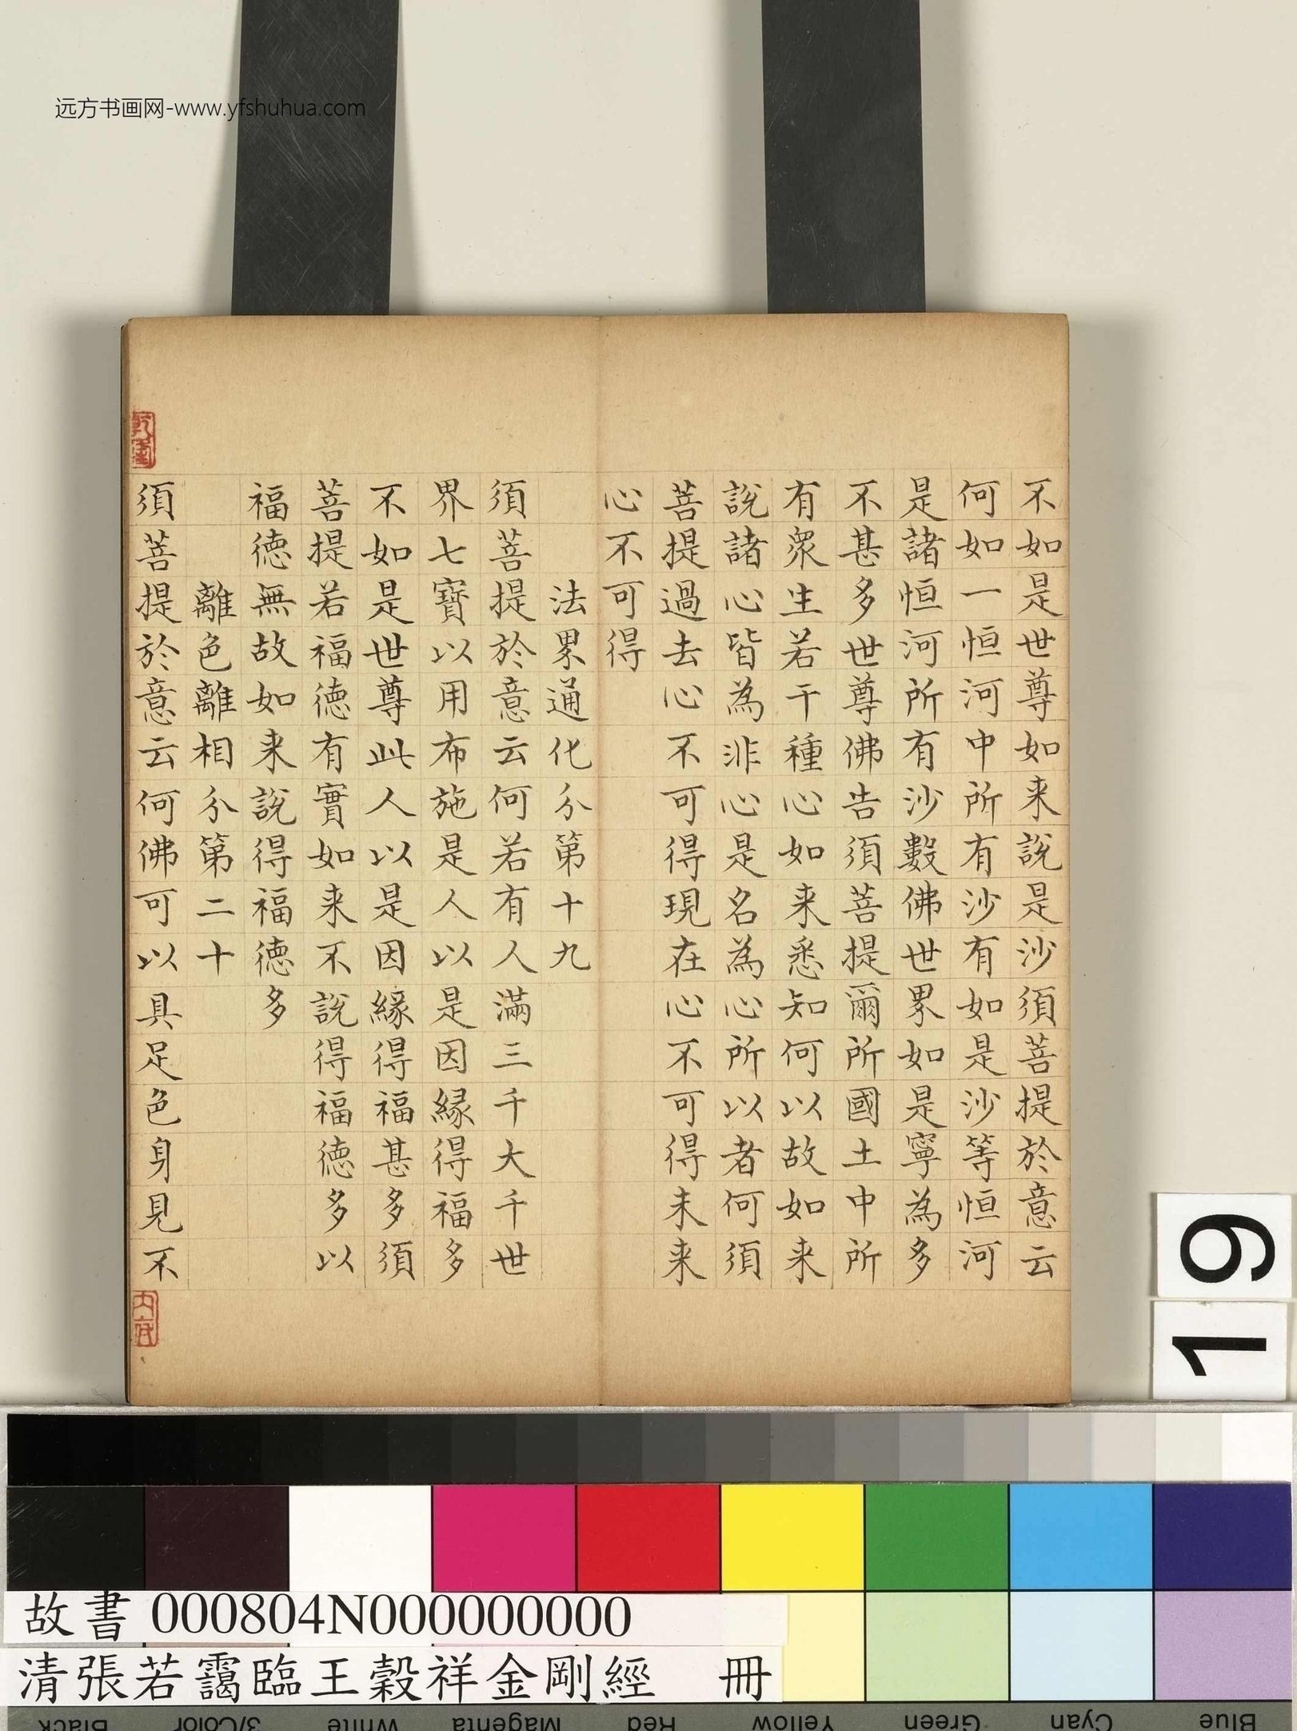 远方书画网-www.yfshuhua.com
不如是世尊如来說是沙須菩提於意云
何如一恒河中所有沙有如是沙等恒河
是諸恒河所有沙數佛世界如是寧為多
不甚多世尊佛告須菩提爾所國土中所
有衆生若干種心如来悉知何以故如来
說諸心皆為非心是名為心所以者何須
菩提過去心不可得現在心不可得未来
心不可得
法界通化分第十九
須菩提於意云何若有人滿三千大千世
界七寶以用布施是人以是因緣得福多
不如是世尊此人以是因緣得福甚多須
菩提若福德有實如来不說得福德多以
福德無故如来說得福德多
離色離相分第二十
須菩提於意云何佛可以具足色身見不
乾隆
内府
19
故書 000804N000000000
清張若靄臨王穀祥金剛經 冊
Black 3/Color White Magenta Red Yellow Green Cyan Blue